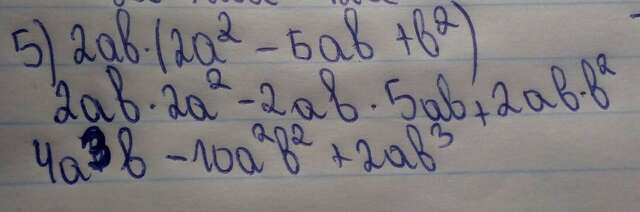 5) 2ab·(2a² - 5ab + b²)
2ab·2a² - 2ab·5ab + 2ab·b²
4a³b - 10a²b² + 2ab³